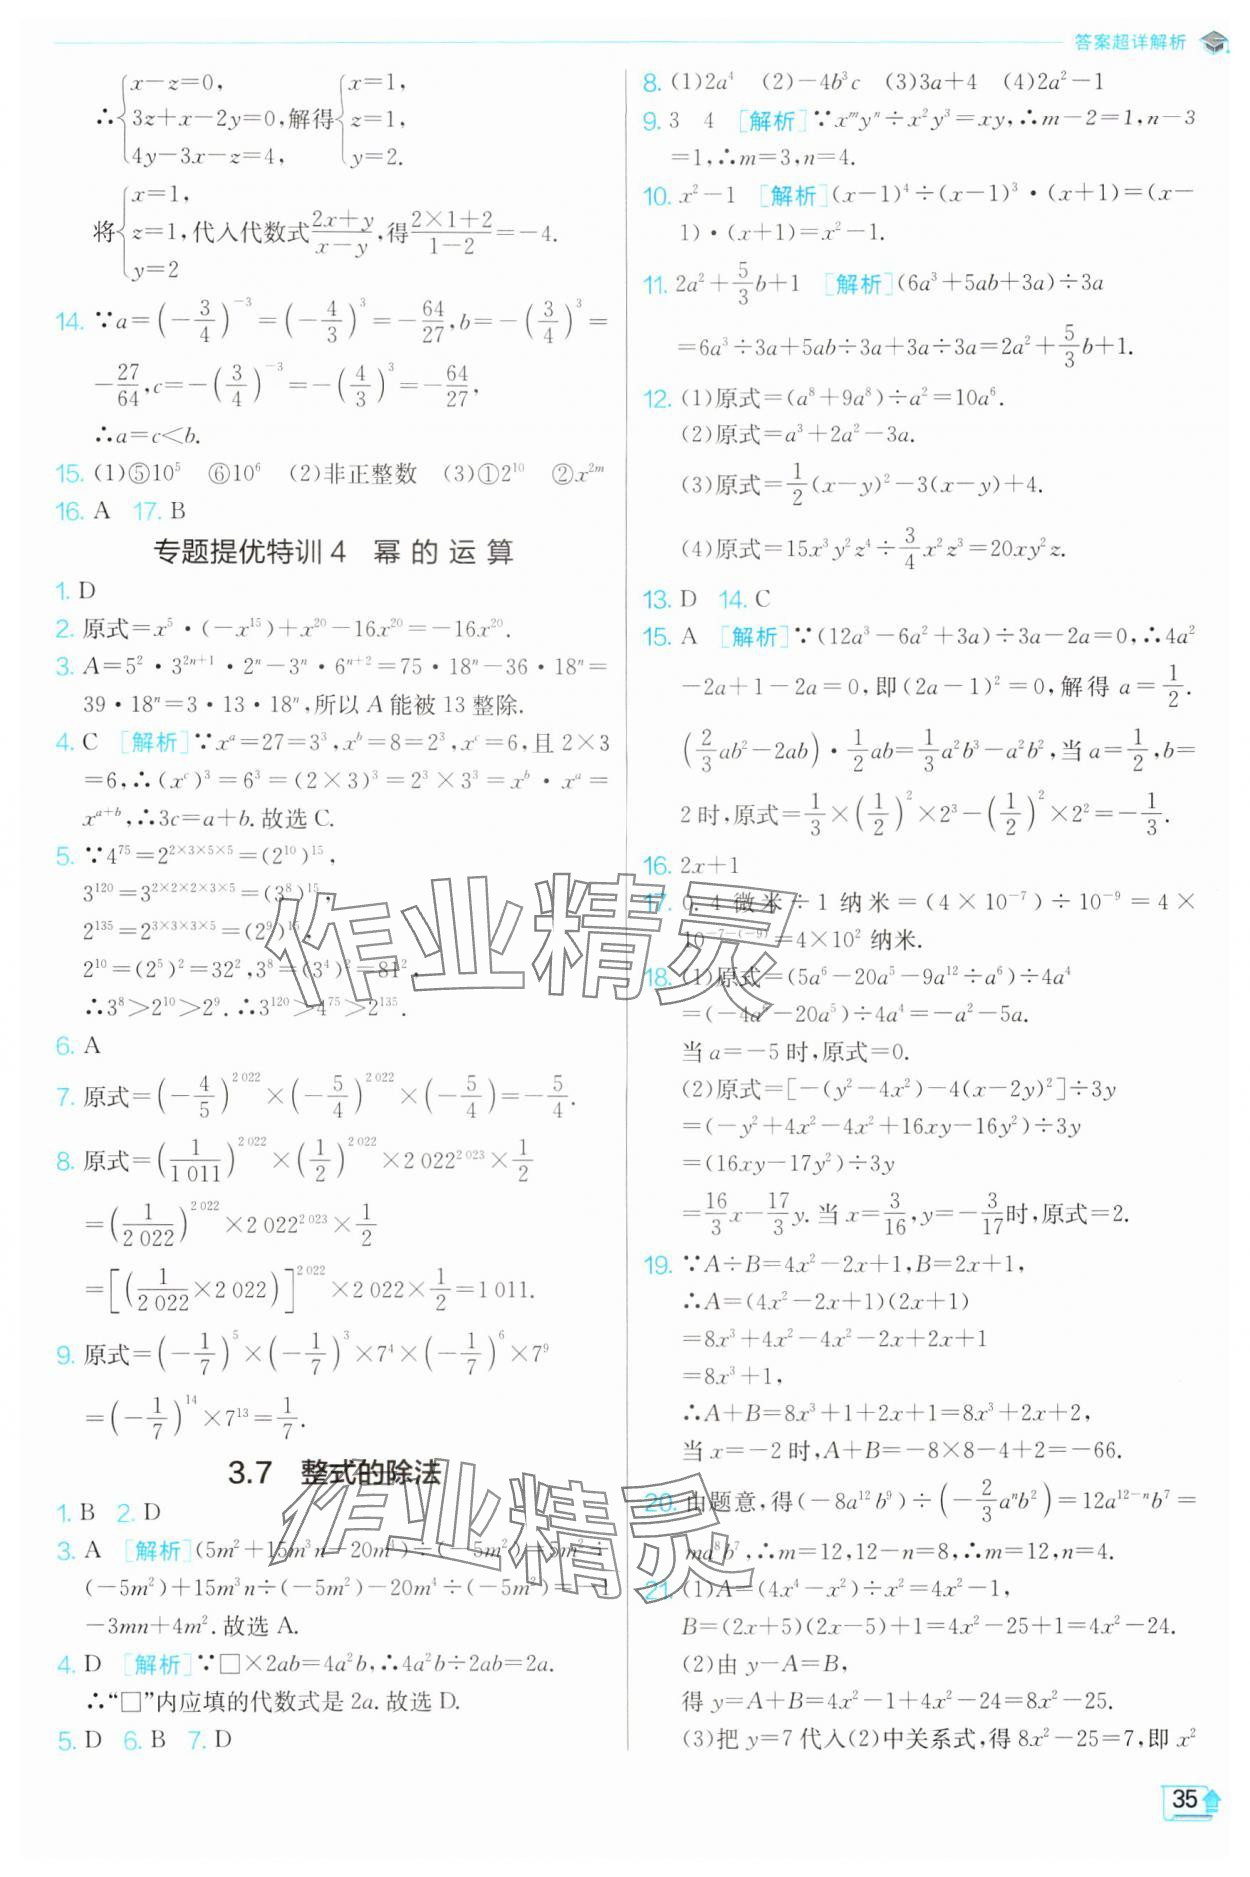 答案超详解析
∴{x-z=0, 3z+x-2y=0, 4y-3x-z=4, 解得{x=1, z=1, y=2.
将{x=1, z=1, y=2 代入代数式(2x+y)/(x-y),得(2×1+2)/(1-2)=-4.
14. ∵a=(-3/4)^{-3}=(-4/3)^3=-64/27,b=-(3/4)^3=
-27/64,c=-(3/4)^{-3}=-(4/3)^3=-64/27,
∴a=c<b.
15. (1)⑤10^5 ⑥10^6 (2)非正整数 (3)①2^{10} ②x^{2m}
16. A 17. B
专题提优特训4 幂的运算
1. D
2. 原式=x^5·(-x^{15})+x^{20}-16x^{20}=-16x^{20}.
3. A=5^2·3^{2n+1}·2^n-3^n·6^{n+2}=75·18^n-36·18^n=
39·18^n=3·13·18^n,所以A能被13整除.
4. C [解析]∵x^a=27=3^3,x^b=8=2^3,x^c=6,且2×3
=6,∴(x^c)^3=6^3=(2×3)^3=2^3×3^3=x^b·x^a=
x^{a+b},∴3c=a+b.故选C.
5. ∵4^{75}=2^{2×3×5×5}=(2^{10})^{15},
3^{120}=3^{2×2×2×3×5}=(3^8)^{15},
2^{135}=2^{3×3×3×5}=(2^9)^{15},
2^{10}=(2^5)^2=32^2,3^8=(3^4)^2=81^2,
∴3^8>2^{10}>2^9.∴3^{120}>4^{75}>2^{135}.
6. A
7. 原式=(-4/5)^{2022}×(-5/4)^{2022}×(-5/4)=-5/4.
8. 原式=(1/1011)^{2022}×(1/2)^{2022}×2022^{2023}×1/2
=(1/2022)^{2022}×2022^{2023}×1/2
=[(1/2022×2022)]^{2022}×2022×1/2=1011.
9. 原式=(-1/7)^5×(-1/7)^3×7^4×(-1/7)^6×7^9
=(-1/7)^{14}×7^{13}=1/7.
3.7 整式的除法
1. B 2. D
3. A [解析](5m^2+15m^3n-20m^4)÷(-5m^2)=5m^2÷
(-5m^2)+15m^3n÷(-5m^2)-20m^4÷(-5m^2)=-1
-3mn+4m^2.故选A.
4. D [解析]∵□×2ab=4a^2b,∴4a^2b÷2ab=2a.
∴“□”内应填的代数式是2a.故选D.
5. D 6. B 7. D
8. (1)2a^4 (2)-4b^3c (3)3a+4 (4)2a^2-1
9. 3 4 [解析]∵x^my^n÷x^2y^3=xy,∴m-2=1,n-3
=1,∴m=3,n=4.
10. x^2-1 [解析](x-1)^4÷(x-1)^3·(x+1)=(x-
1)·(x+1)=x^2-1.
11. 2a^2+5/3b+1 [解析](6a^3+5ab+3a)÷3a
=6a^3÷3a+5ab÷3a+3a÷3a=2a^2+5/3b+1.
12. (1)原式=(a^8+9a^8)÷a^2=10a^6.
(2)原式=a^3+2a^2-3a.
(3)原式=1/2(x-y)^2-3(x-y)+4.
(4)原式=15x^3y^2z^4÷3/4x^2z^3=20xy^2z.
13. D 14. C
15. A [解析]∵(12a^3-6a^2+3a)÷3a-2a=0,∴4a^2
-2a+1-2a=0,即(2a-1)^2=0,解得a=1/2.
(2/3ab^2-2ab)·1/2ab=1/3a^2b^3-a^2b^2,当a=1/2,b=
2时,原式=1/3×(1/2)^2×2^3-(1/2)^2×2^2=-1/3.
16. 2x+1
17. 0.4微米÷1纳米=(4×10^{-7})÷10^{-9}=4×
10^{-7-(-9)}=4×10^2纳米.
18. (1)原式=(5a^6-20a^5-9a^{12}÷a^6)÷4a^4
=(-4a^6-20a^5)÷4a^4=-a^2-5a.
当a=-5时,原式=0.
(2)原式=[-(y^2-4x^2)-4(x-2y)^2]÷3y
=(-y^2+4x^2-4x^2+16xy-16y^2)÷3y
=(16xy-17y^2)÷3y
=16/3x-17/3y.当x=3/16,y=-3/17时,原式=2.
19. ∵A÷B=4x^2-2x+1,B=2x+1,
∴A=(4x^2-2x+1)(2x+1)
=8x^3+4x^2-4x^2-2x+2x+1
=8x^3+1,
∴A+B=8x^3+1+2x+1=8x^3+2x+2,
当x=-2时,A+B=-8×8-4+2=-66.
20. 由题意,得(-8a^{12}b^9)÷(-2/3a^nb^2)=12a^{12-n}b^7=
ma^8b^7,∴m=12,12-n=8,∴m=12,n=4.
21. (1)A=(4x^4-x^2)÷x^2=4x^2-1,
B=(2x+5)(2x-5)+1=4x^2-25+1=4x^2-24.
(2)由y-A=B,
得y=A+B=4x^2-1+4x^2-24=8x^2-25.
(3)把y=7代入(2)中关系式,得8x^2-25=7,即x^2
作业精灵
作业精灵
35